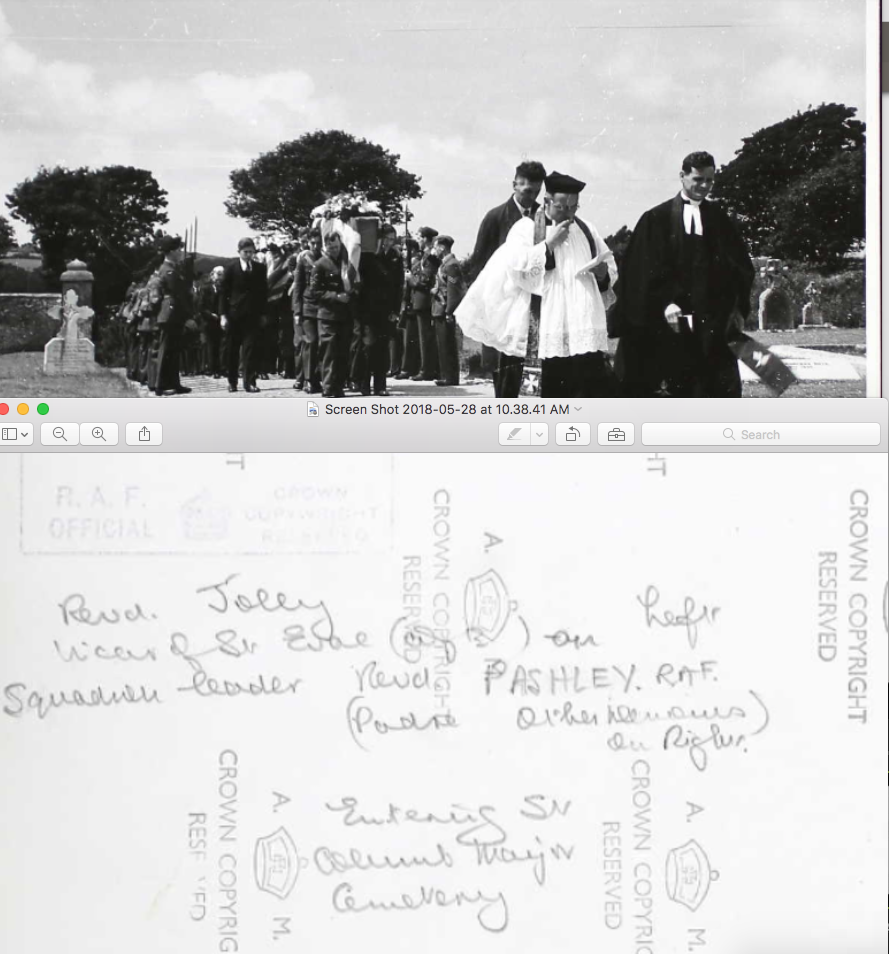 Screen Shot 2018-05-28 at 10.38.41 AM
Search
R.A.F.
OFFICIAL
CROWN
COPYRIGHT
RESERVED
CROWN COPYRIGHT
RESERVED
A.
CROWN COPYRIGHT
RESERVED
Revd. Jolly left
Vicar of St Eval ( ) on
Squadron leader Revd. PASHLEY. RAF.
(Padre other denoms)
on Right.
CROWN COPYRIG
A. M.
Entering St
Columb Major
Cemetery
CROWN COPYRIG
RESERVED
A. M.